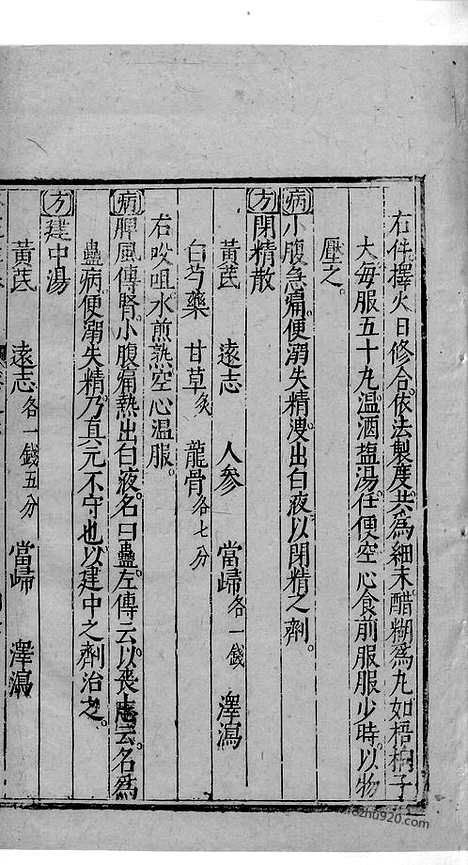 右件擇火日修合依法製度共為細末醋糊為丸如梧桐子
大每服五十丸温酒塩湯任便空心食前服服少時以物
壓之
病小腹急痛便溺失精溲出白液以閉精之劑
方閉精散
黃芪 遠志 人參 當歸各一錢 澤瀉
白芍藥 甘草炙 龍骨各七分
右㕮咀水煎熟空心温服
病脾風傳腎小腹痛熱出白液名曰蠱左傳云以喪志名為
蠱病便溺失精乃真元不守也以建中之劑治之
方建中湯
黃芪 遠志各一錢五分 當歸 澤瀉